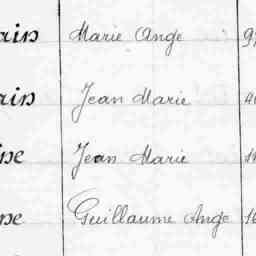 ain Marie Ange
ain Jean Marie
ne Jean Marie
ne Guillaume Ange